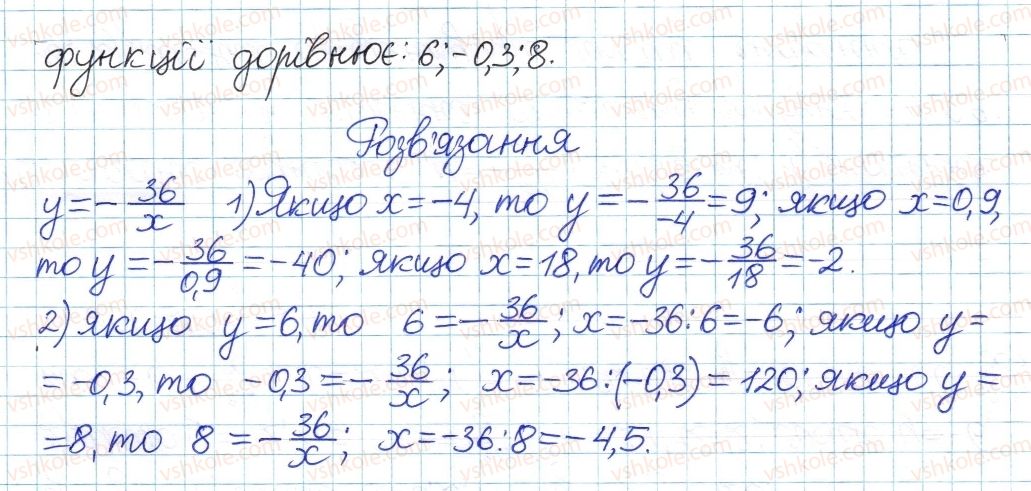 функції дорівнює: 6; -0,3; 8.
Розв'язання
y = - 36/x 1) Якщо x = -4, то y = - 36/-4 = 9; якщо x = 0,9,
то y = - 36/0,9 = -40; якщо x = 18, то y = - 36/18 = -2.
2) якщо y = 6, то 6 = - 36/x; x = -36:6 = -6; якщо y =
= -0,3, то -0,3 = - 36/x; x = -36:(-0,3) = 120; якщо y =
= 8, то 8 = - 36/x; x = -36:8 = -4,5.